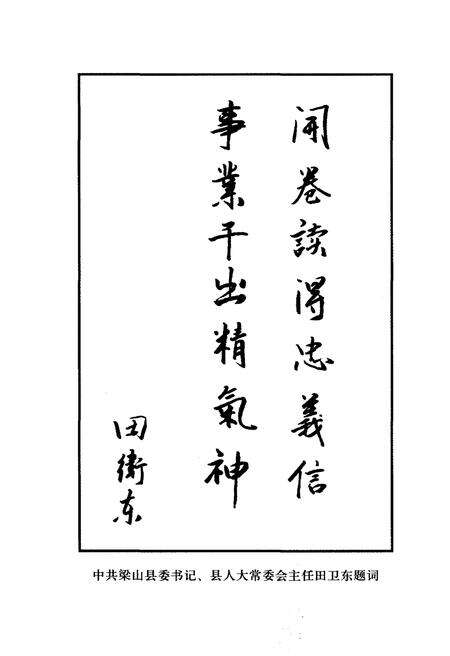 開卷讀得忠義信
事業干出精氣神
田衛东
中共梁山县委书记、县人大常委会主任田卫东题词